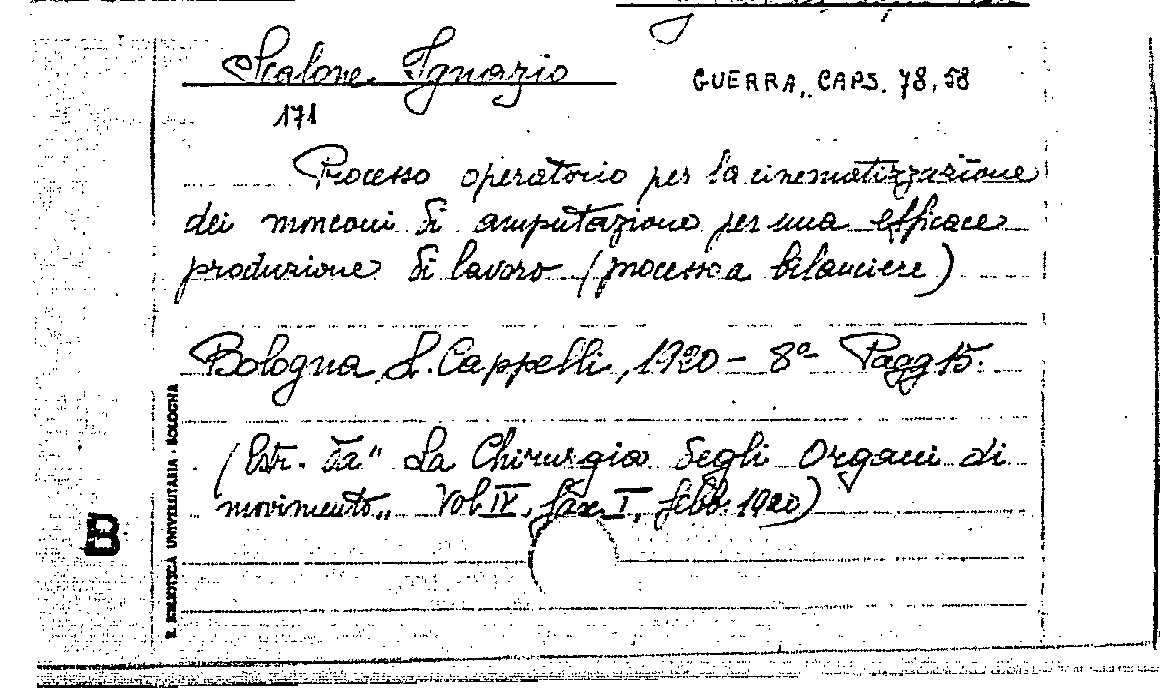 Scalone Ignazio
GUERRA, CAPS. 78, 58
171
Processo operatorio per la cinematizzazione
dei monconi di amputazione per una efficace
produzione di lavoro (processo a bilanciere)
Bologna, L. Cappelli, 1920 - 8º Pagg 15.
(Estr. da "La Chirurgia degli Organi di
movimento„ Vol. IV, fasc. I, febb. 1920)
R. BIBLIOTECA UNIVERSITARIA - BOLOGNA
B